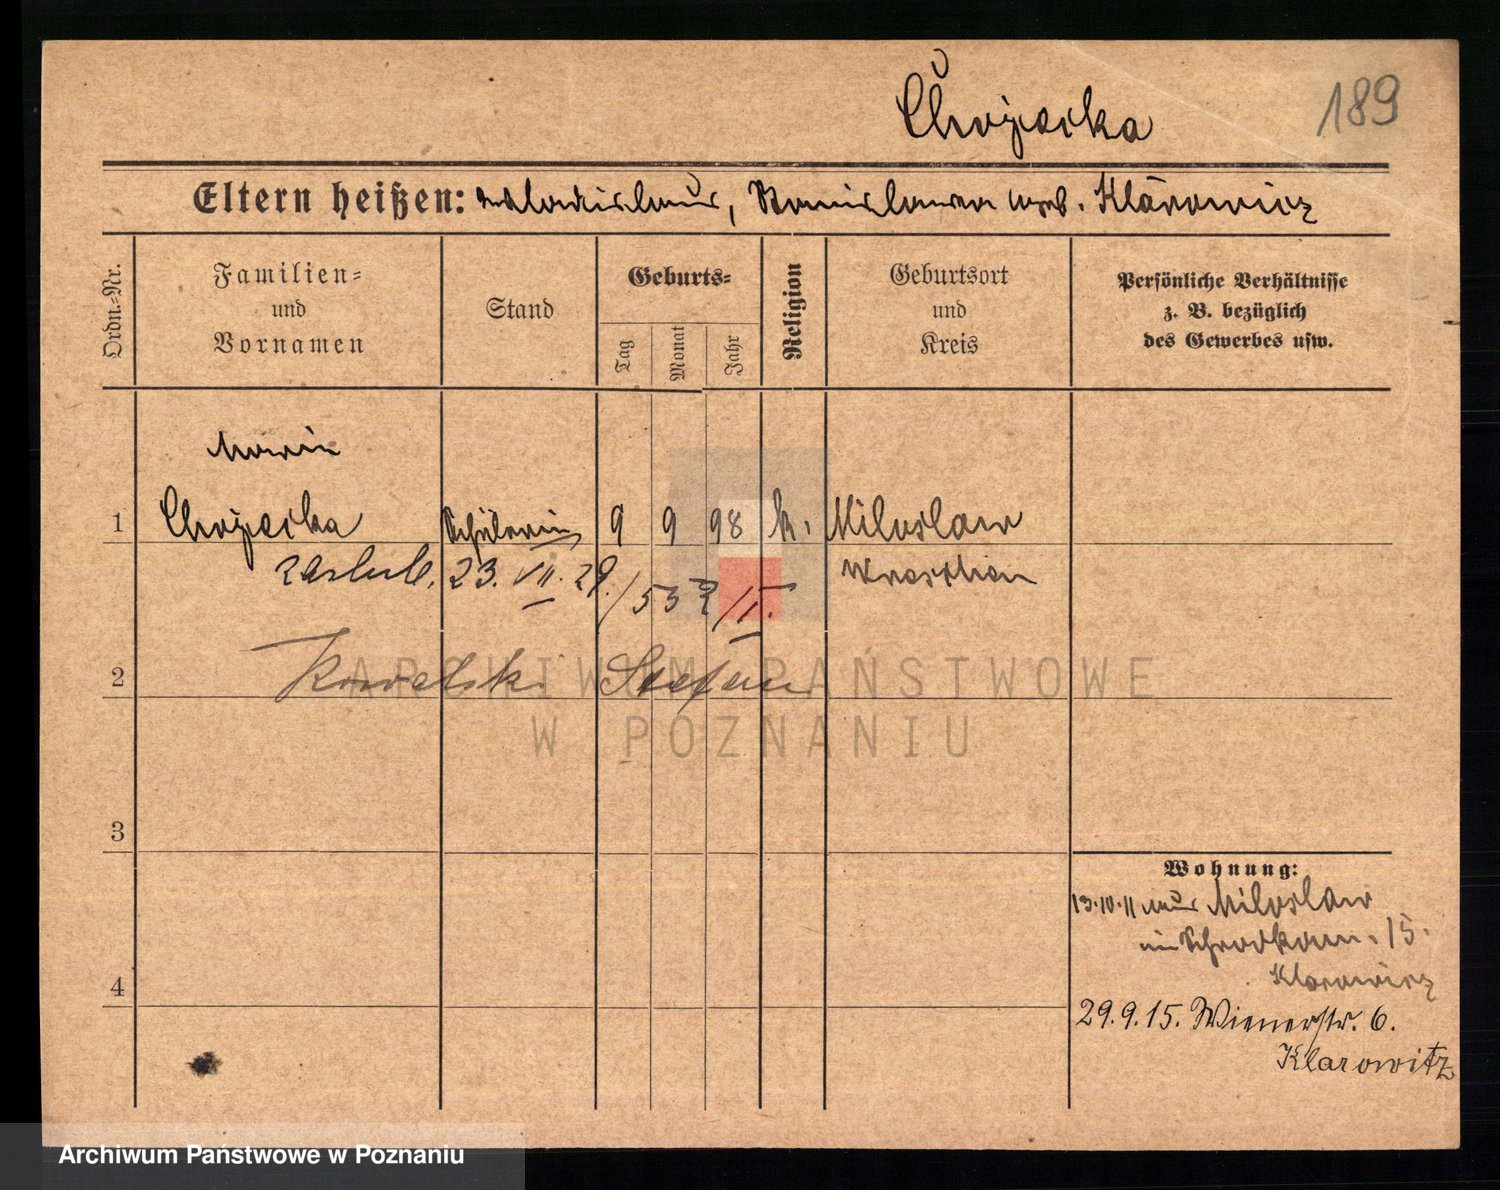 189
Chojecka
Eltern heißen: Wladislaus, Stanislawa geb. Klarowicz
Ordn.=Nr.
Familien=
und
Vornamen
Stand
Geburts=
Tag
Monat
Jahr
Religion
Geburtsort
und
Kreis
Persönliche Verhältnisse
z. B. bezüglich
des Gewerbes usw.
Maria
1 Chojecka Schülerin 9 9 98 k. Miloslaw
zaślub. 23. VII. 29. Wreschen
2 Kowalski Stefan
ARCHIWUM PAŃSTWOWE
W POZNANIU
3
Wohnung:
13.10.11 aus Miloslaw
15.
4
Klarowicz
29.9.15. Wienerstr. 6.
Klarowitz
Archiwum Państwowe w Poznaniu